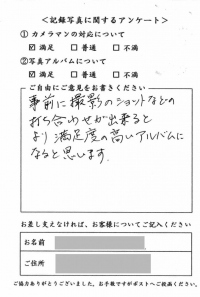 ＜記録写真に関するアンケート＞
① カメラマンの対応について
☑ 満足 □ 普通 □ 不満
②写真アルバムについて
☑ 満足 □ 普通 □ 不満
ご自由にご意見をお書きください
事前に撮影のショットなどの
打ち合わせが出来ると
より満足度の高いアルバムに
なると思います.
お差し支えなければ、お客様についてご記入ください
お名前
ご住所
ご協力ありがとうございました。お手数ですがポストへご投函ください。